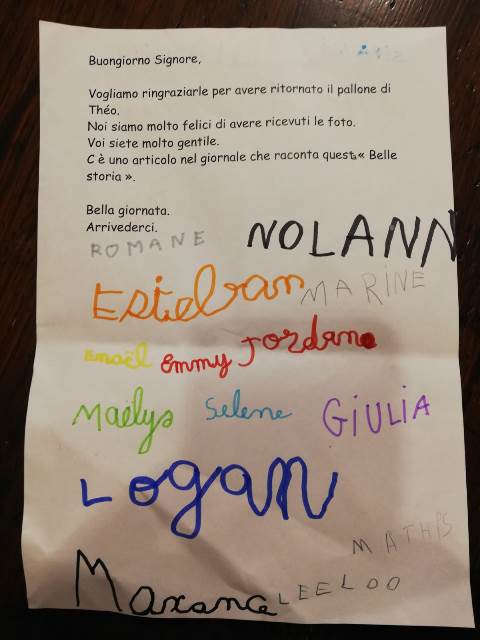 Buongiorno Signore,
Vogliamo ringraziarle per avere ritornato il pallone di
Théo.
Noi siamo molto felici di avere ricevuti le foto.
Voi siete molto gentile.
C è uno articolo nel giornale che raconta questa « Belle
storia ».
Bella giornata.
Arrivederci.
ROMANE NOLANN
Esteban MARINE
Emmy Jordane
Maëlys Selene GiULiA
LOGAN
MATHIS
Maxance LEELOO